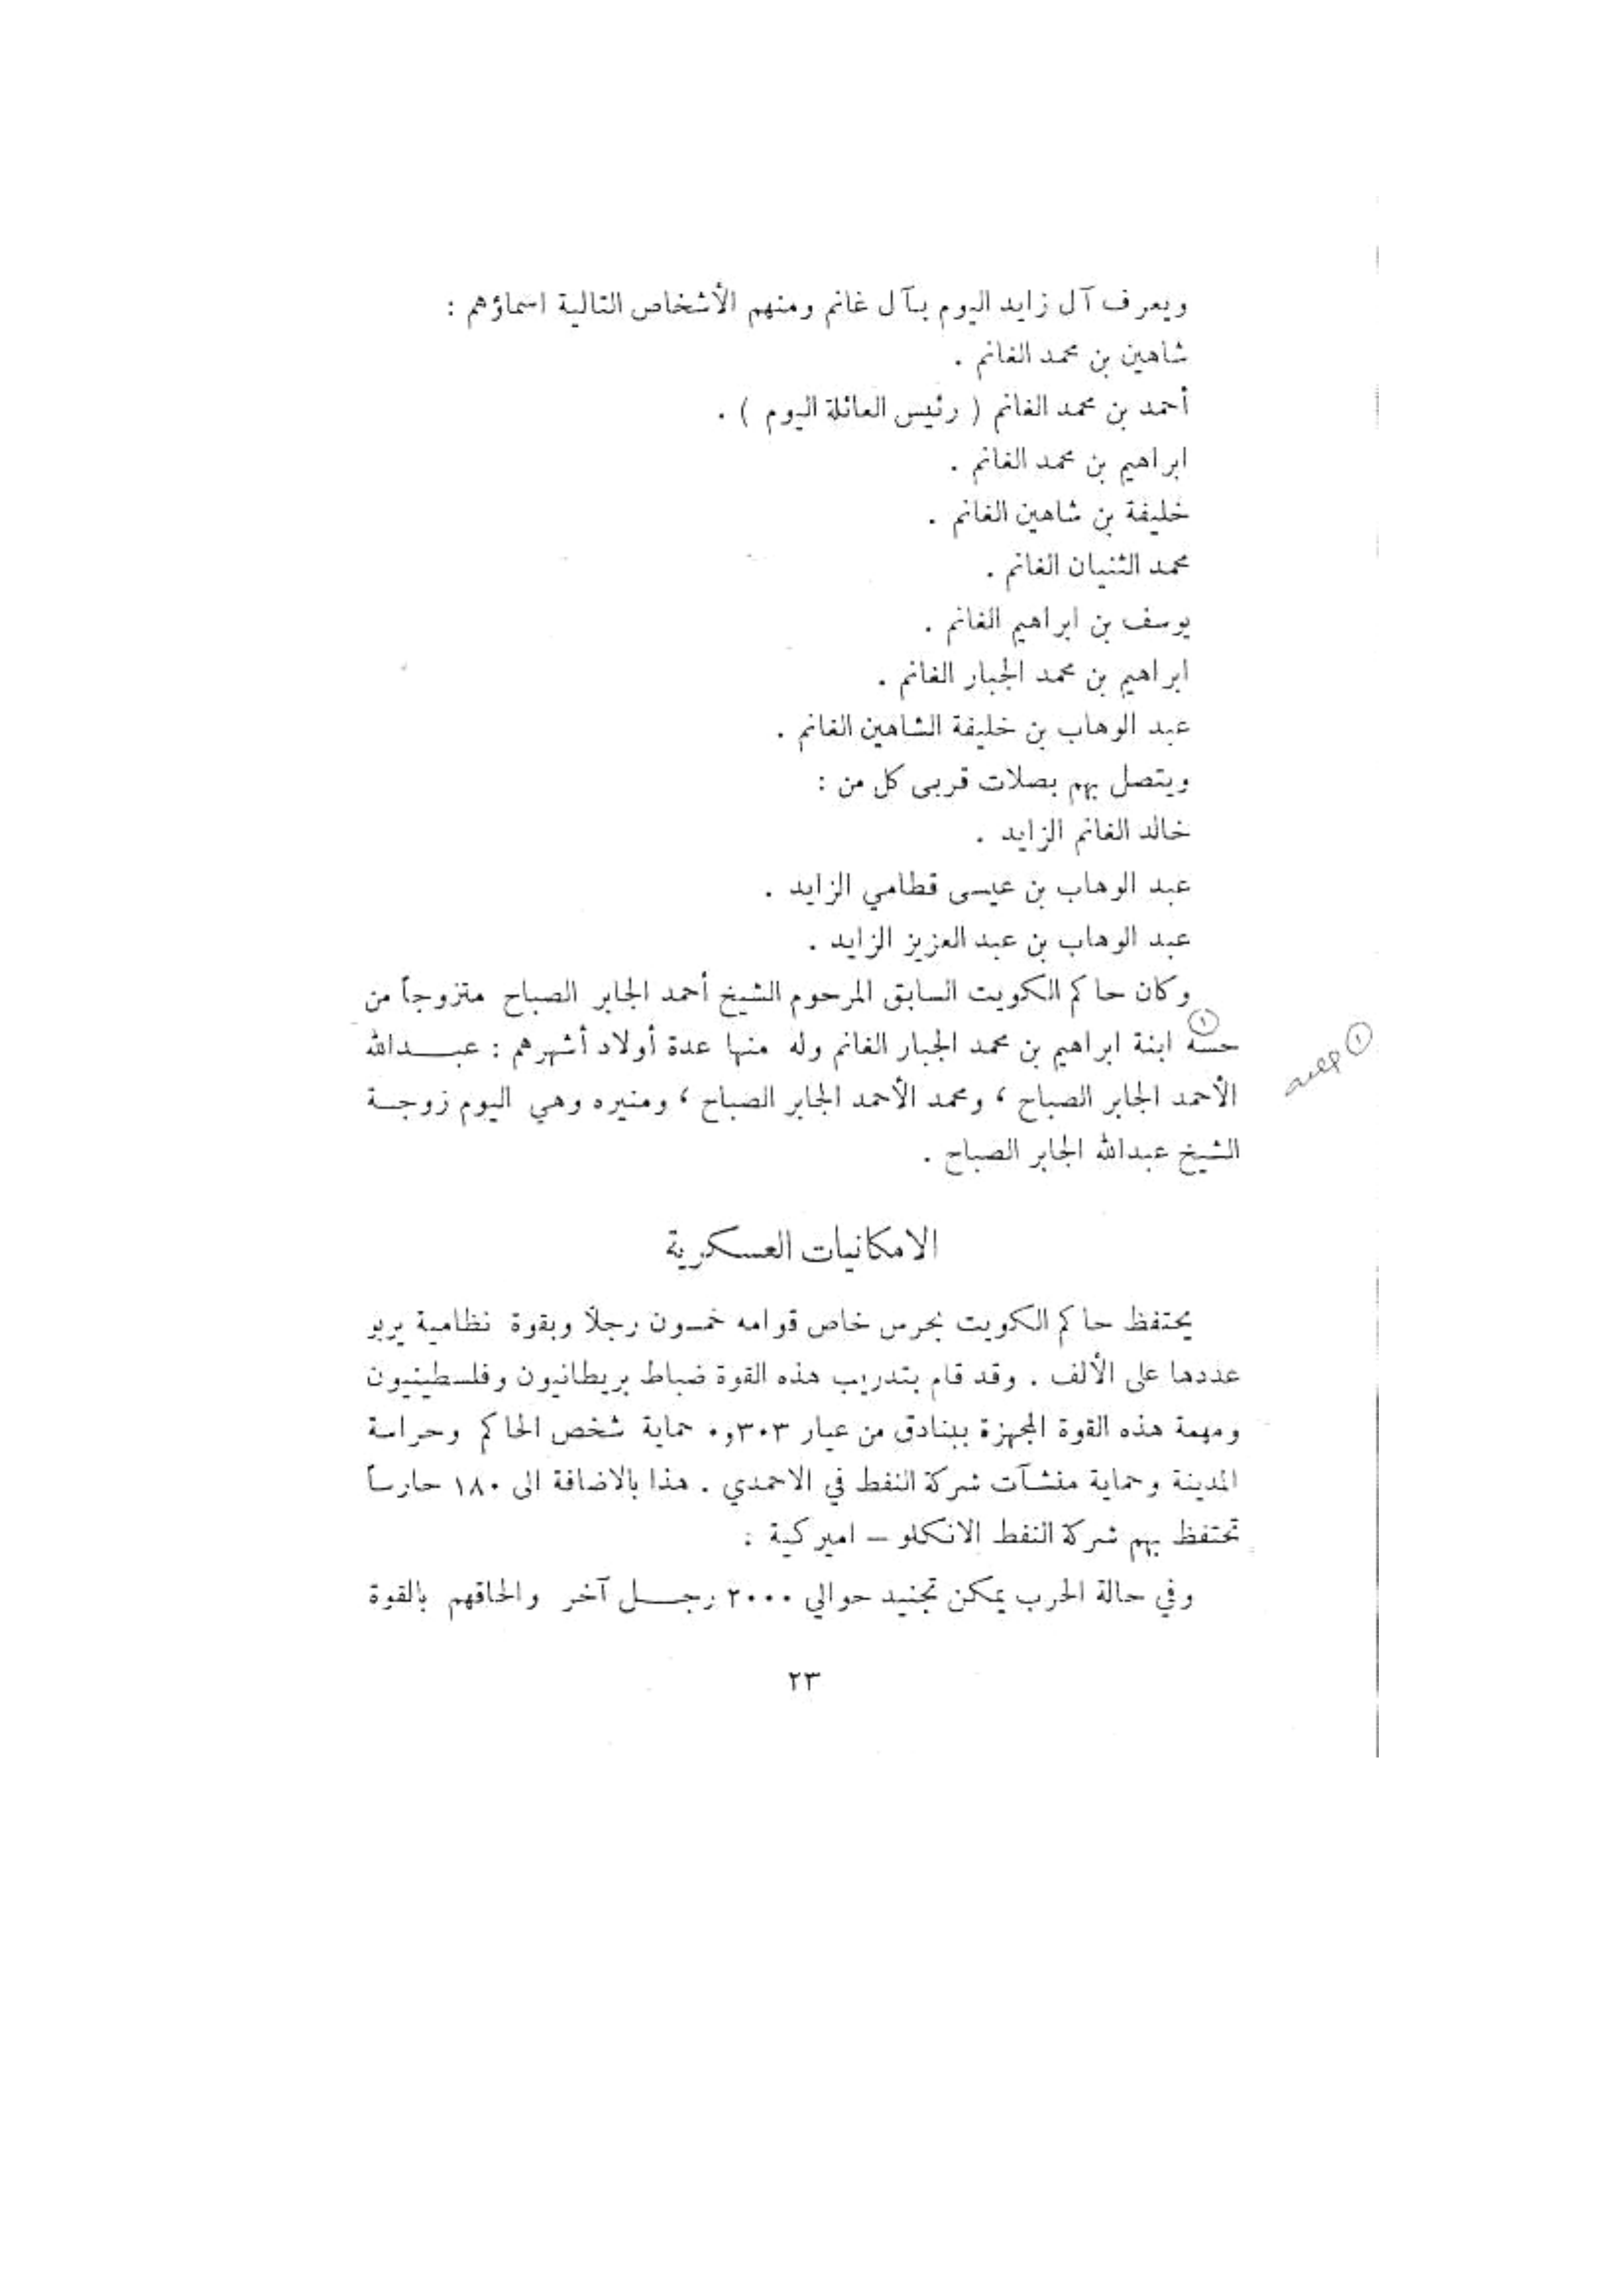 ويعرف آل زايد اليوم بآل غانم ومنهم الأشخاص التالية اسماؤهم :
شاهين بن محمد الغانم .
أحمد بن محمد الغانم ( رئيس العائلة اليوم ) .
ابراهيم بن محمد الغانم .
خليفة بن شاهين الغانم .
محمد الثنيان الغانم .
يوسف بن ابراهيم الغانم .
ابراهيم بن محمد الجبار الغانم .
عبد الوهاب بن خليفة الشاهين الغانم .
ويتصل بهم بصلات قربى كل من :
خالد الغانم الزايد .
عبد الوهاب بن عيسى قطامي الزايد .
عبد الوهاب بن عبد العزيز الزايد .
وكان حاكم الكويت السابق المرحوم الشيخ أحمد الجابر الصباح متزوجاً من
حسه ابنة ابراهيم بن محمد الجبار الغانم وله منها عدة أولاد أشهرهم : عبدالله
الأحمد الجابر الصباح ، ومحمد الأحمد الجابر الصباح ، ومنيره وهي اليوم زوجة
الشيخ عبدالله الجابر الصباح .
الامكانيات العسكرية
يحتفظ حاكم الكويت بحرس خاص قوامه خمسون رجلاً وبقوة نظامية يربو
عددها على الألف . وقد قام بتدريب هذه القوة ضباط بريطانيون وفلسطينيون
ومهمة هذه القوة المجهزة ببنادق من عيار ٣٠٣و٠ حماية شخص الحاكم وحراسة
المدينة وحماية منشآت شركة النفط في الاحمدي . هذا بالاضافة الى ١٨٠ حارساً
تحتفظ بهم شركة النفط الانكلو – اميركية .
وفي حالة الحرب يمكن تجنيد حوالي ٢٠٠٠ رجل آخر والحاقهم بالقوة
٢٣